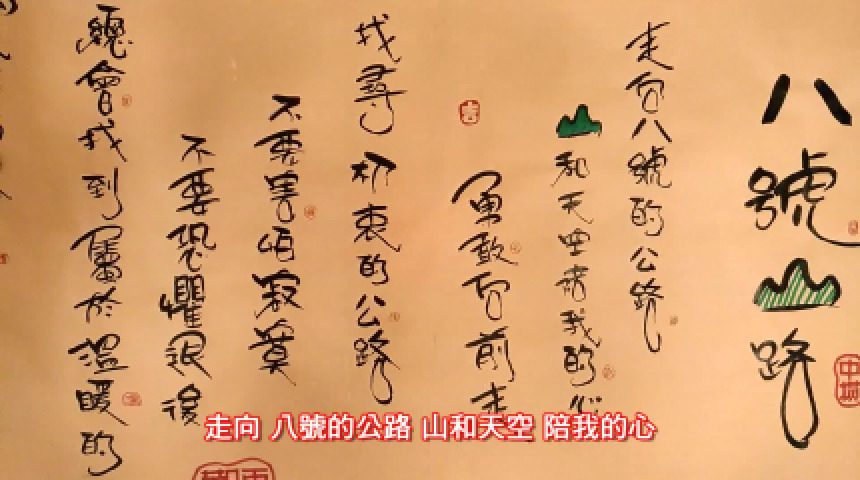 八號山路
走向八號的公路
山和天空陪我的心
勇敢向前走
找尋初衷的公路
不要害怕寂寞
不要恐懼退後
總會找到屬於溫暖的
走向 八號的公路 山和天空 陪我的心